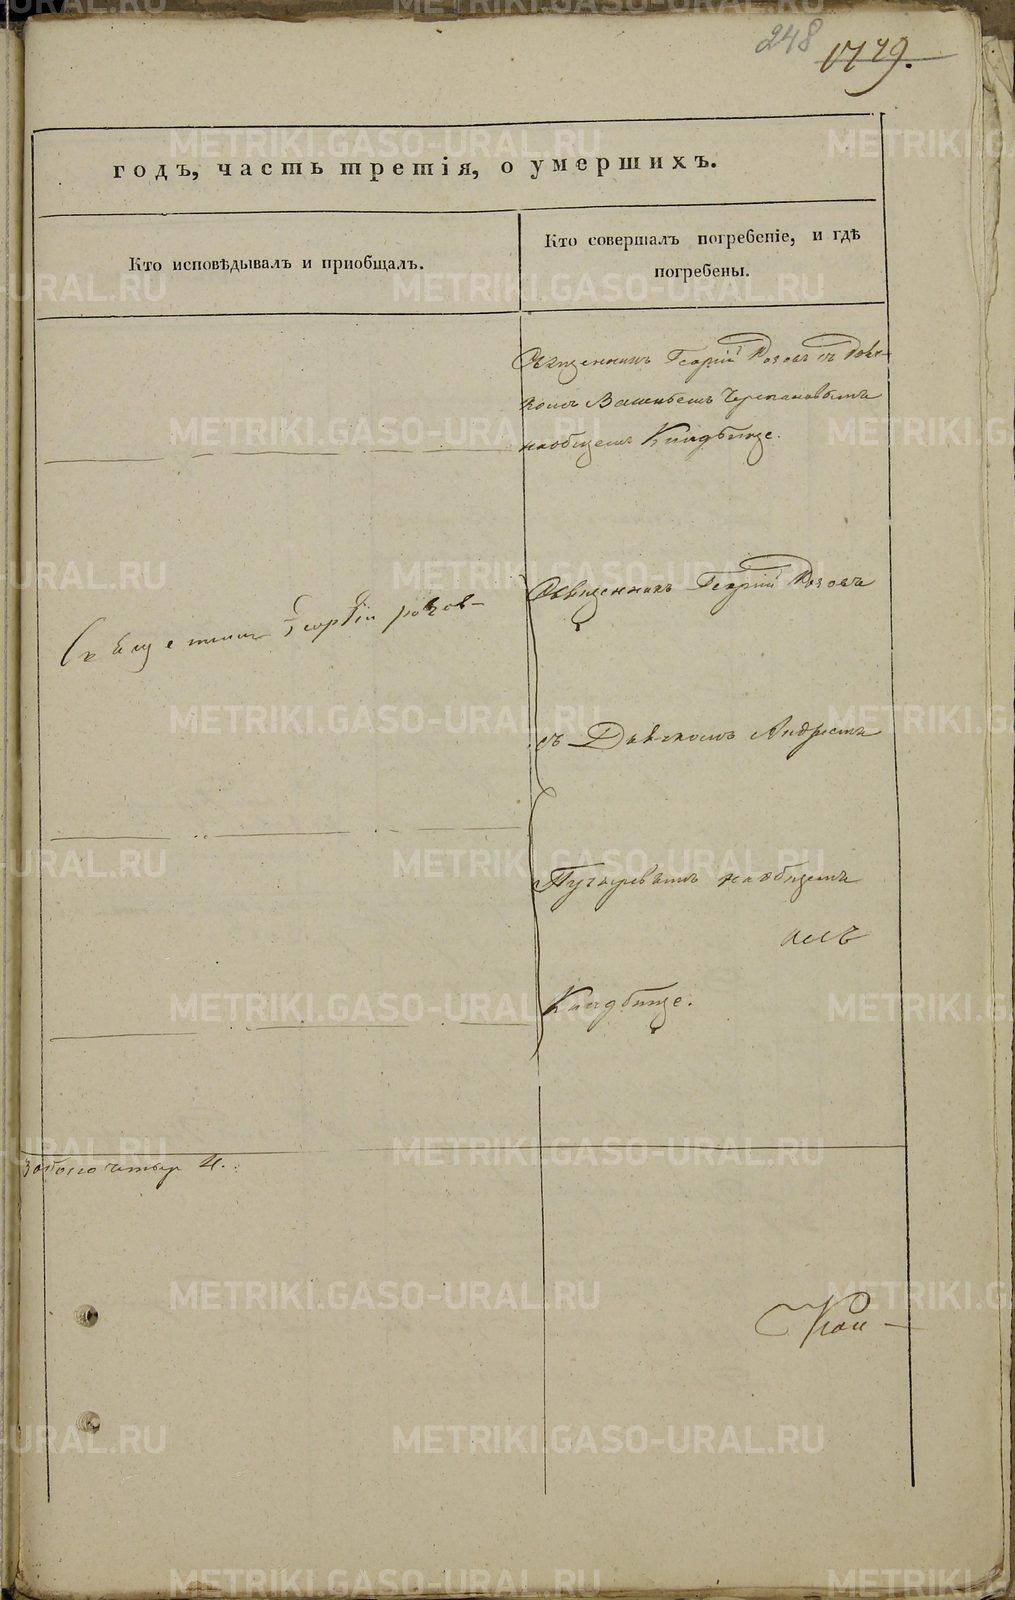 248 1779.
годъ, часть третія, о умершихъ.
Кто исповѣдывалъ и пріобщалъ.
Кто совершалъ погребеніе, и гдѣ
погребены.
Священникъ Георгій Розовъ съ Дья-
комъ Черепановымъ
наобщемъ Кладбище.
Священникъ Георгій Розовъ
Священник Георгій розов
съ Дьячкомъ Андреемъ
Пузыревымъ наобщемъ
Кладбище.
четыр 4.
METRIKI.GASO-URAL.RU